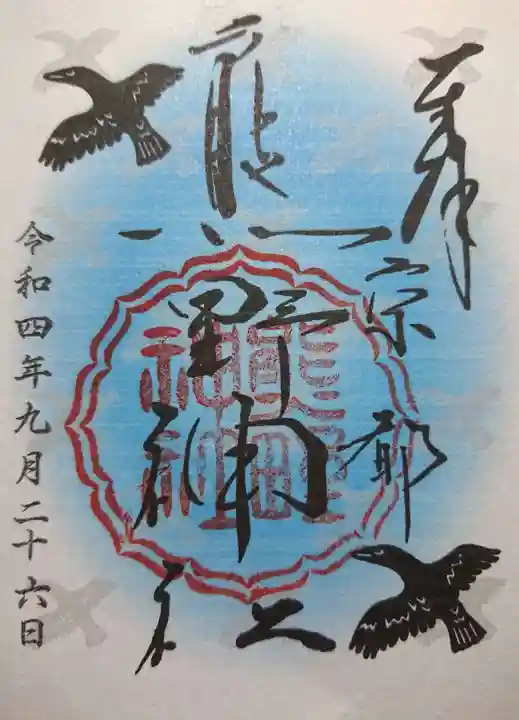 奉拝
宗都
熊野神社
熊野神社
令和四年九月二十六日